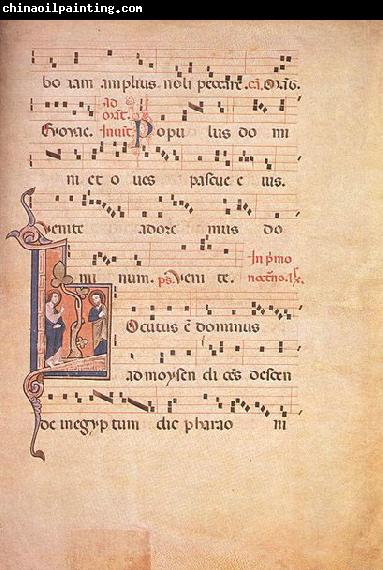 chinaoilpainting.com
bo ram amplius noli peccare. ca. Orās.
Evovae. ad orāt. Inuit Popu lus do mi
ni et o ues pascue e ius.
Uenite adore mus do
mi num. ps. Ueni te. In pͥmo nocͭno. ℟.
Ocutus ē dominus
ad moysen di cēs descen
de in egyp tum dic pharao ni